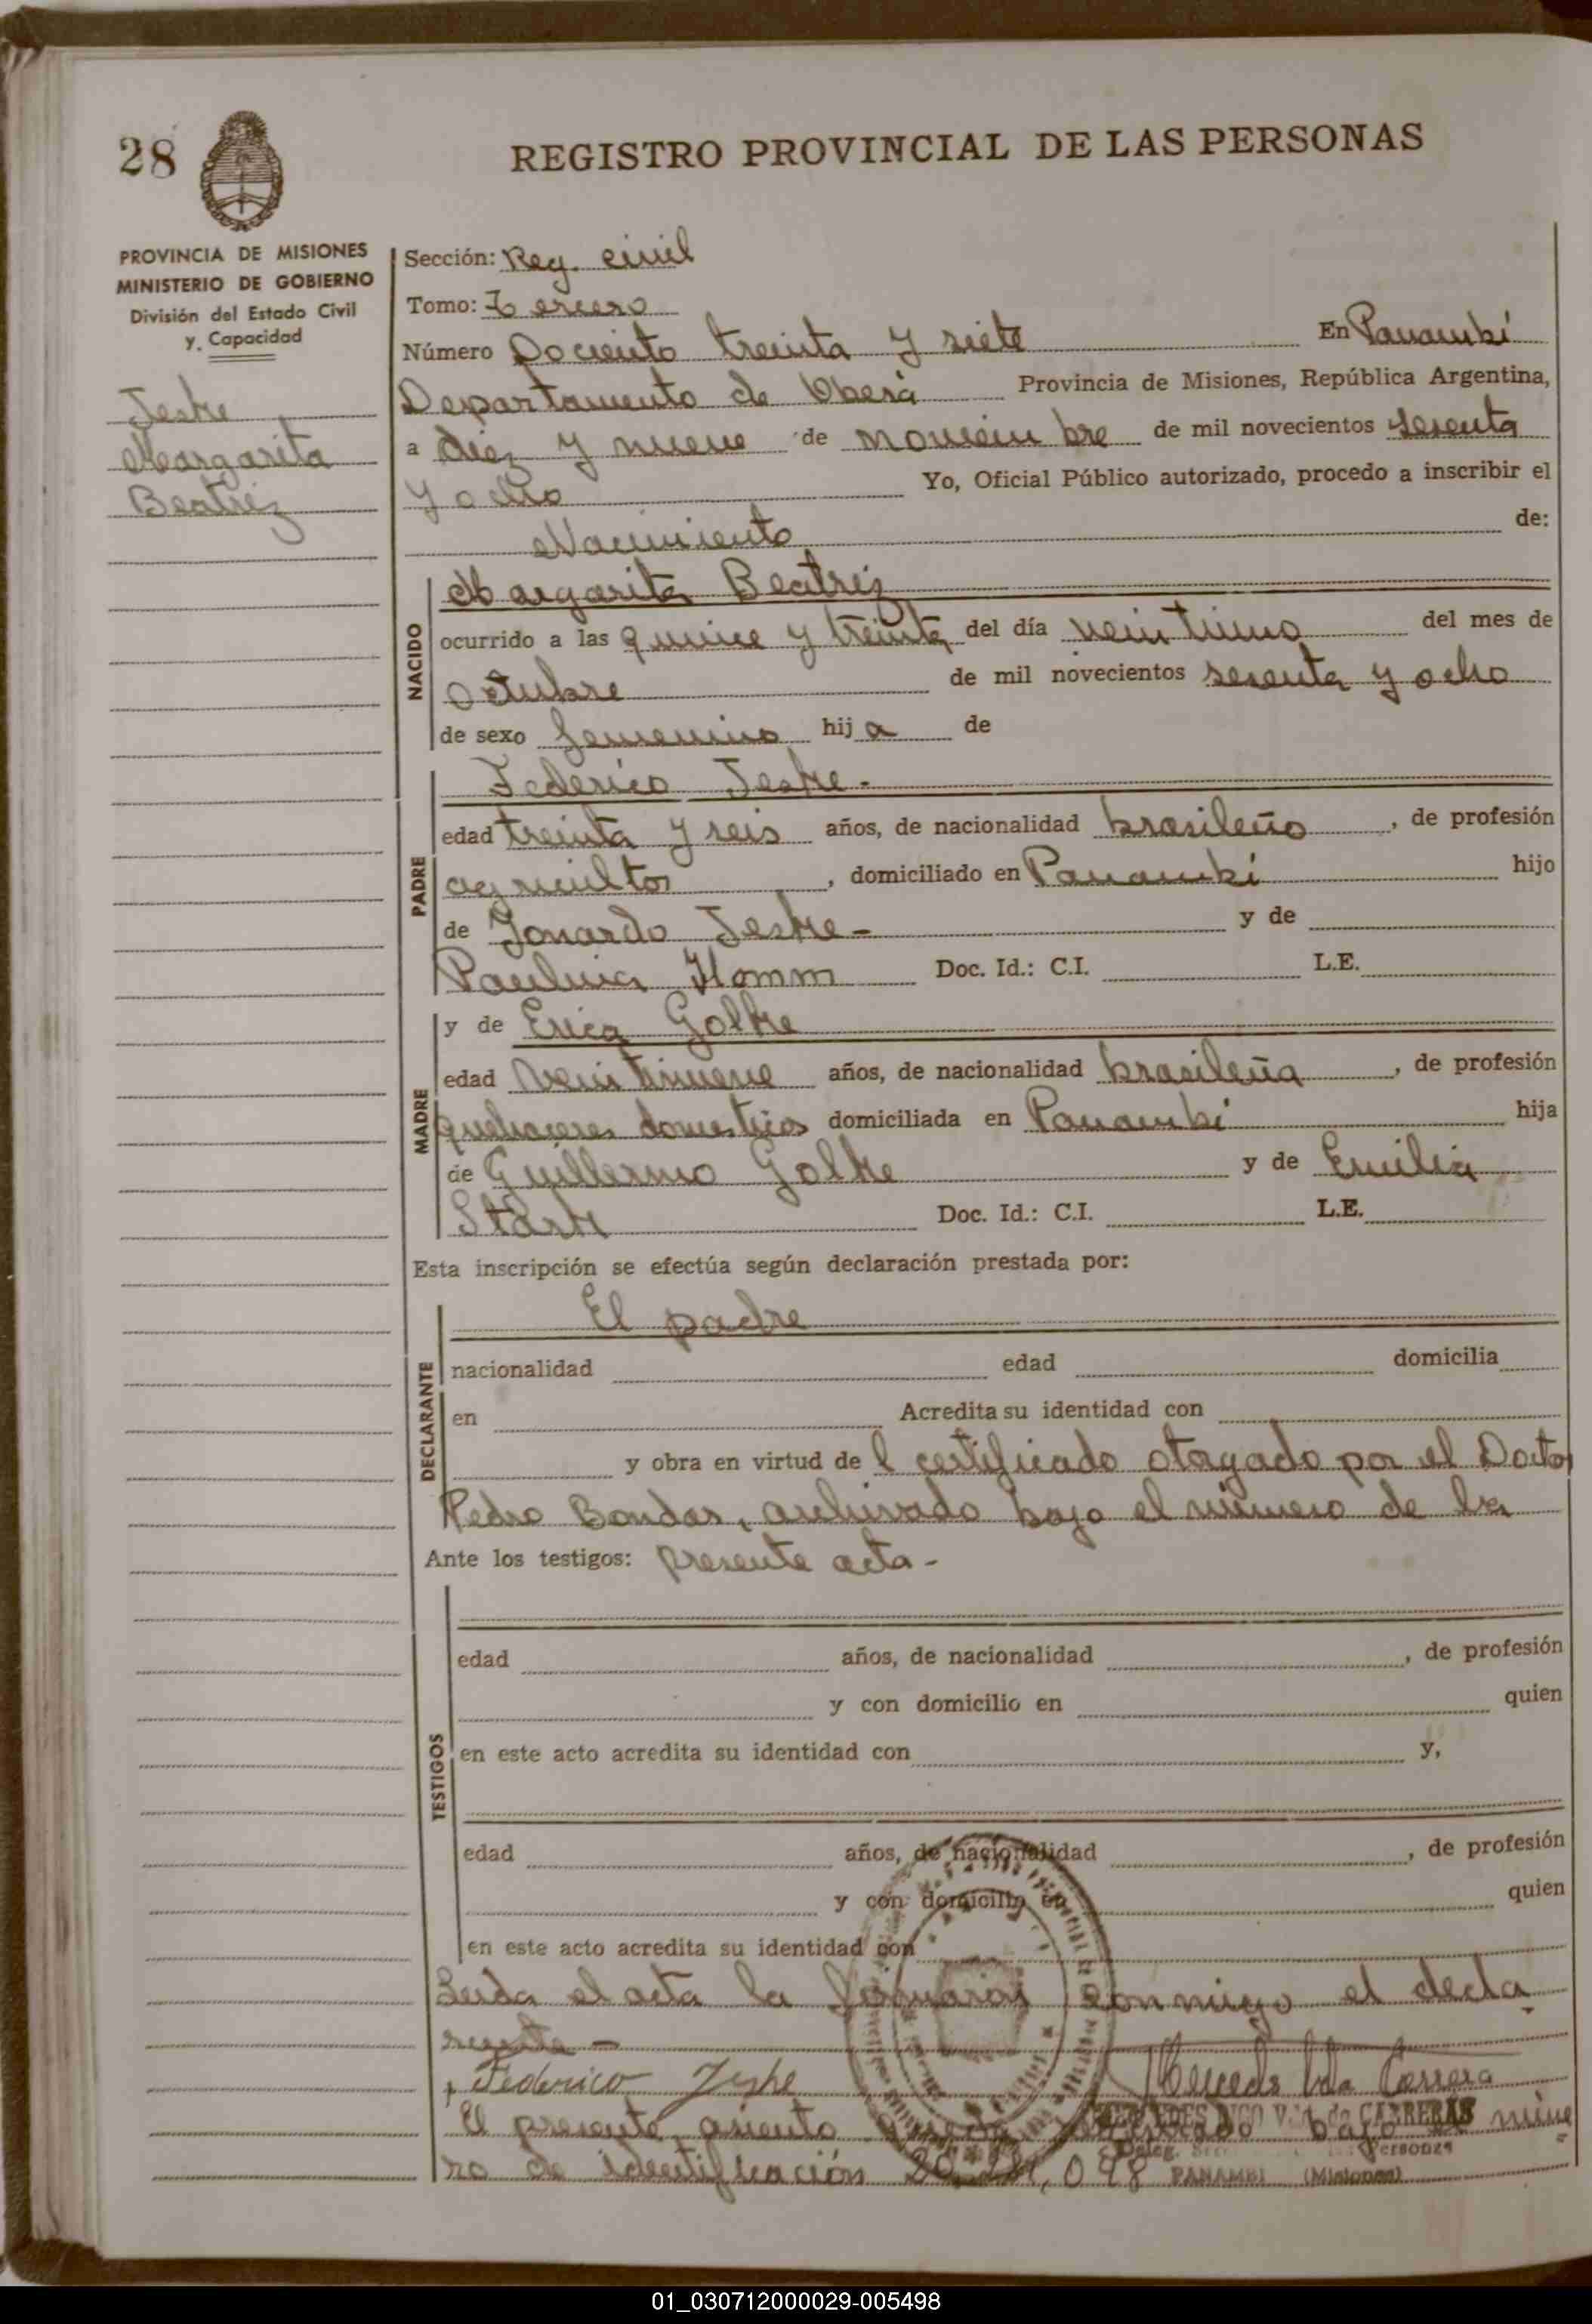 28
REGISTRO PROVINCIAL DE LAS PERSONAS
PROVINCIA DE MISIONES
MINISTERIO DE GOBIERNO
División del Estado Civil
y Capacidad
Jeske
Margarita
Beatriz
Sección: Reg. civil
Tomo: Tercero
Número Dociento treinta y siete En Panambí
Departamento de Oberá Provincia de Misiones, República Argentina,
a diez y nueve de noviembre de mil novecientos sesenta
y ocho Yo, Oficial Público autorizado, procedo a inscribir el
Nacimiento de:
NACIDO
Margarita Beatriz
ocurrido a las quince y treinta del día veintiuno del mes de
octubre de mil novecientos sesenta y ocho
de sexo femenino hija de
PADRE
Federico Jeske.
edad treinta y seis años, de nacionalidad brasileño, de profesión
agricultor, domiciliado en Panambí hijo
de Jonardo Jeske - y de
Paulina Homm Doc. Id.: C.I. L.E.
MADRE
y de Erica Golke
edad veintinueve años, de nacionalidad brasileña, de profesión
quehaceres domesticos domiciliada en Panambí hija
de Guillermo Golke y de Emilia
Stark Doc. Id.: C.I. L.E.
Esta inscripción se efectúa según declaración prestada por:
DECLARANTE
El padre
nacionalidad edad domicilia
en Acredita su identidad con
y obra en virtud de l certificado otorgado por el Doctor
Pedro Bondar, archivado bajo el número de la
Ante los testigos: presente acta -
TESTIGOS
edad años, de nacionalidad , de profesión
y con domicilio en quien
en este acto acredita su identidad con y,
edad años, de nacionalidad , de profesión
y con domicilio en quien
en este acto acredita su identidad con
Leida el acta la firmaron conmigo el decla
rante -
Federico Jeske Mercedes Vda Carrera
El presente asiento bajo el núme
CARRERAS
Personas
ro de identificación 048
PANAMBI (Misiones)
01_030712000029-005498